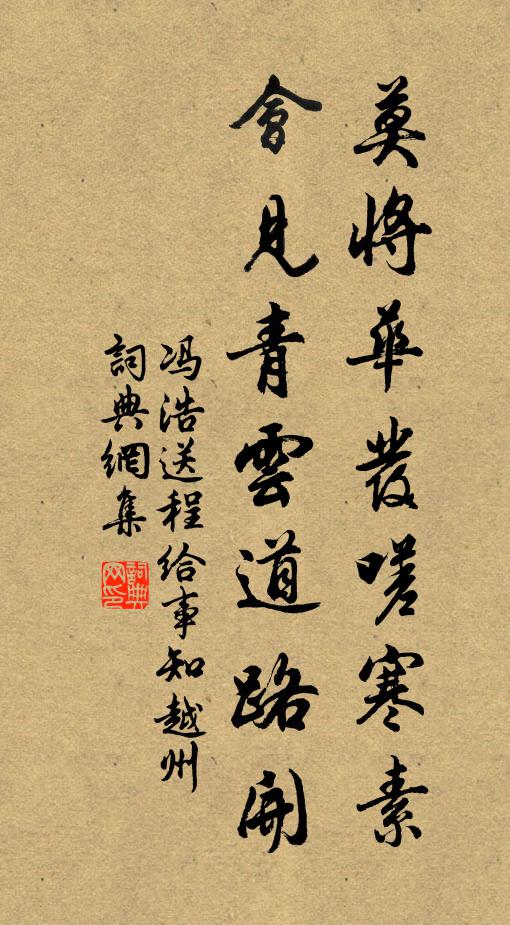 莫將華發嗟寒素
會見青雲道路開
冯浩送程给事知越州
詞典網集
詞典網印